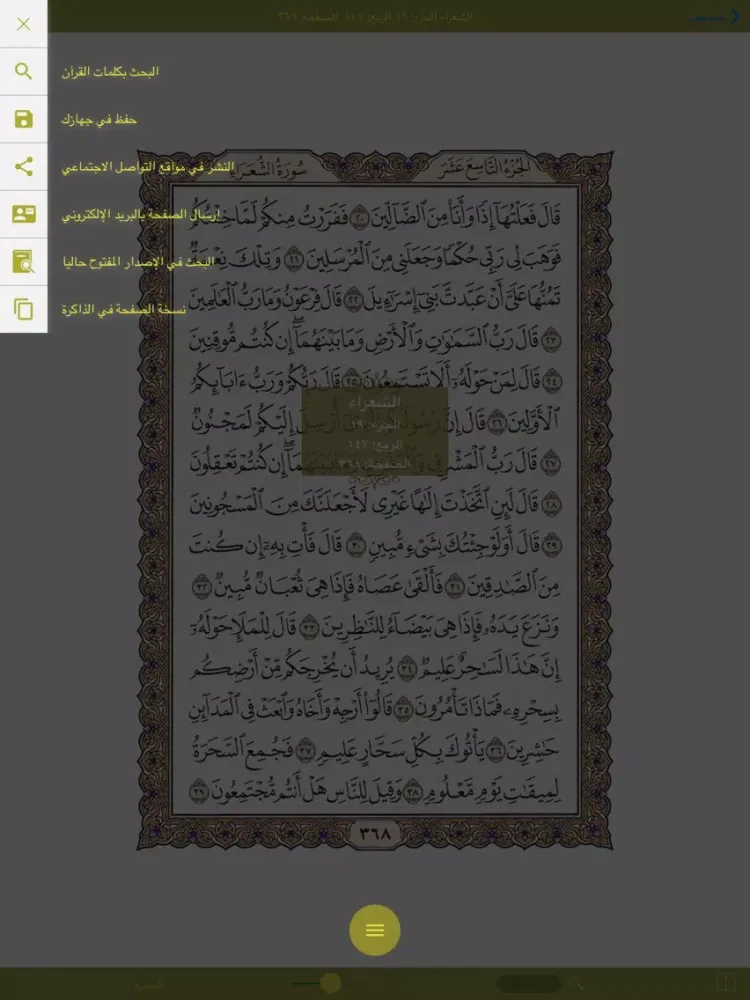 الشعراء الجزء: ١٩ الربع: ١٤٧ الصفحة: ٣٦٨
البحث بكلمات القرآن
حفظ في جهازك
النشر في مواقع التواصل الاجتماعي
إرسال الصفحة بالبريد الإلكتروني
البحث في الإصدار المفتوح حاليا
نسخة الصفحة في الذاكرة
الجزء التاسع عشر
سورة الشعراء
قَالَ فَعَلْتُهَا إِذًا وَأَنَا۠ مِنَ ٱلضَّآلِّينَ ٢٠ فَفَرَرْتُ مِنكُمْ لَمَّا خِفْتُكُمْ
فَوَهَبَ لِى رَبِّى حُكْمًا وَجَعَلَنِى مِنَ ٱلْمُرْسَلِينَ ٢١ وَتِلْكَ نِعْمَةٌ
تَمُنُّهَا عَلَىَّ أَنْ عَبَّدتَّ بَنِىٓ إِسْرَٰٓءِيلَ ٢٢ قَالَ فِرْعَوْنُ وَمَا رَبُّ ٱلْعَٰلَمِينَ
٢٣ قَالَ رَبُّ ٱلسَّمَٰوَٰتِ وَٱلْأَرْضِ وَمَا بَيْنَهُمَآ إِن كُنتُم مُّوقِنِينَ
٢٤ قَالَ لِمَنْ حَوْلَهُۥٓ أَلَا تَسْتَمِعُونَ ٢٥ قَالَ رَبُّكُمْ وَرَبُّ ءَابَآئِكُمُ
ٱلْأَوَّلِينَ ٢٦ قَالَ إِنَّ رَسُولَكُمُ ٱلَّذِىٓ أُرْسِلَ إِلَيْكُمْ لَمَجْنُونٌ
٢٧ قَالَ رَبُّ ٱلْمَشْرِقِ وَٱلْمَغْرِبِ وَمَا بَيْنَهُمَآ إِن كُنتُمْ تَعْقِلُونَ
٢٨ قَالَ لَئِنِ ٱتَّخَذْتَ إِلَٰهًا غَيْرِى لَأَجْعَلَنَّكَ مِنَ ٱلْمَسْجُونِينَ
٢٩ قَالَ أَوَلَوْ جِئْتُكَ بِشَىْءٍ مُّبِينٍ ٣٠ قَالَ فَأْتِ بِهِۦٓ إِن كُنتَ
مِنَ ٱلصَّٰدِقِينَ ٣١ فَأَلْقَىٰ عَصَاهُ فَإِذَا هِىَ ثُعْبَانٌ مُّبِينٌ ٣٢
وَنَزَعَ يَدَهُۥ فَإِذَا هِىَ بَيْضَآءُ لِلنَّٰظِرِينَ ٣٣ قَالَ لِلْمَلَإِ حَوْلَهُۥٓ
إِنَّ هَٰذَا لَسَٰحِرٌ عَلِيمٌ ٣٤ يُرِيدُ أَن يُخْرِجَكُم مِّنْ أَرْضِكُم
بِسِحْرِهِۦ فَمَاذَا تَأْمُرُونَ ٣٥ قَالُوٓا۟ أَرْجِهْ وَأَخَاهُ وَٱبْعَثْ فِى ٱلْمَدَآئِنِ
حَٰشِرِينَ ٣٦ يَأْتُوكَ بِكُلِّ سَحَّارٍ عَلِيمٍ ٣٧ فَجُمِعَ ٱلسَّحَرَةُ
لِمِيقَٰتِ يَوْمٍ مَّعْلُومٍ ٣٨ وَقِيلَ لِلنَّاسِ هَلْ أَنتُم مُّجْتَمِعُونَ ٣٩
الشعراء
الجزء: ١٩
الربع: ١٤٧
الصفحة: ٣٦٨
٣٦٨